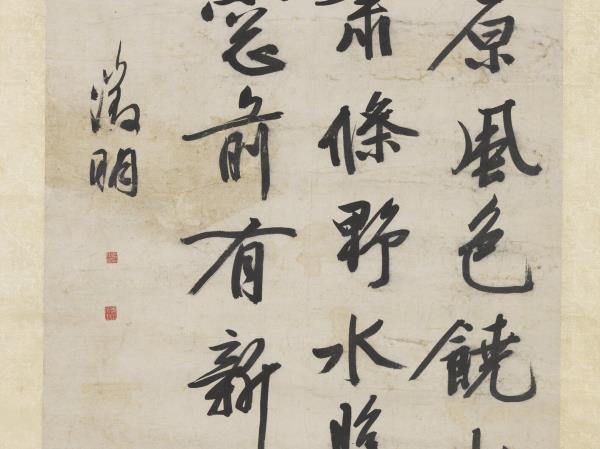 原風色饒
蕭條野水
窓前有新
徵明